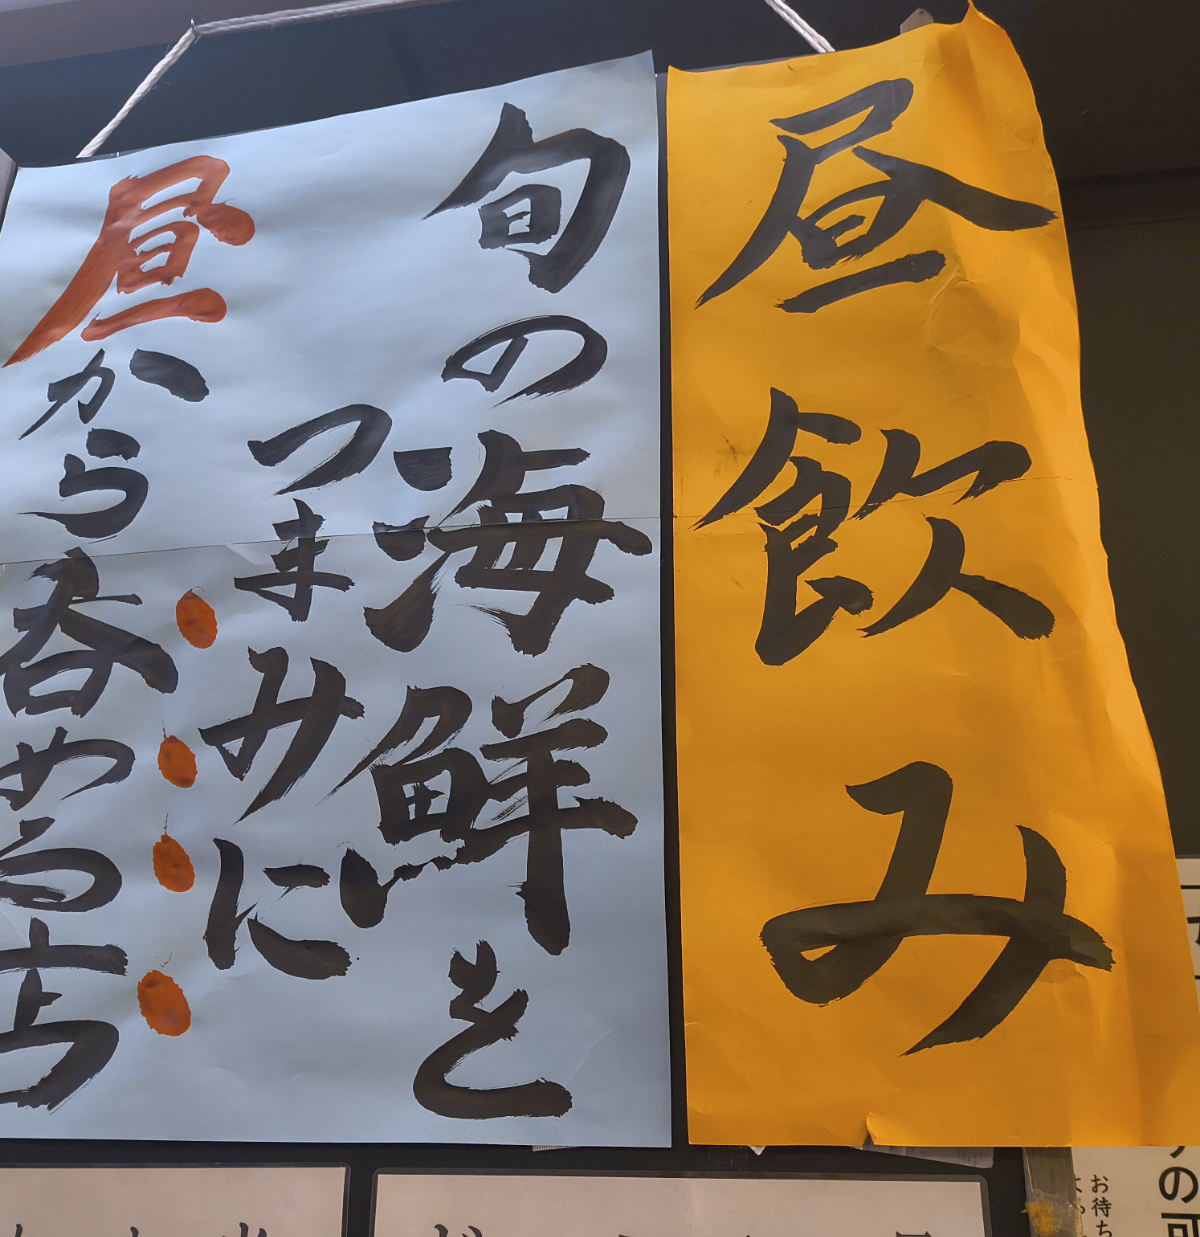 昼飲み
旬の海鮮を
つまみに
昼から呑める占
お待ち
の可